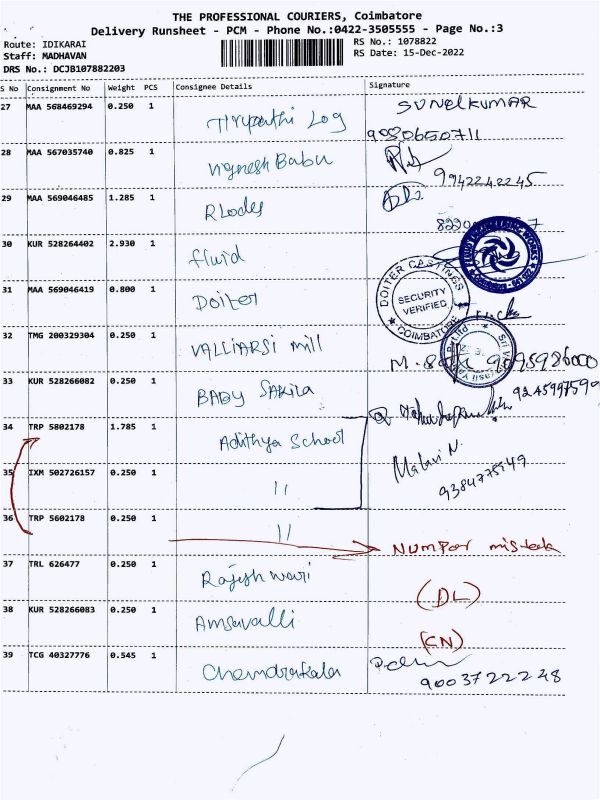 THE PROFESSIONAL COURIERS, Coimbatore
Delivery Runsheet - PCM - Phone No.:0422-3505555 - Page No.:3
Route: IDIKARAI
RS No.: 1078822
Staff: MADHAVAN
RS Date: 15-Dec-2022
DRS No.: DCJB107882203
S No Consignment No Weight PCS Consignee Details Signature
27 MAA 568469294 0.250 1 Tirupathi Log SUNELKUMAR
28 MAA 567035740 0.825 1 Vignesh Babu
9942242245
29 MAA 569046485 1.285 1 Rlodes
30 KUR 528264402 2.930 1 fluid
FLUID ENGINEERING WORKS
31 MAA 569046419 0.800 1 Doiter
DOITER CASTINGS
SECURITY
VERIFIED
COIMBATORE
32 TMG 200329304 0.250 1 VALLIARSI mill
33 KUR 528266082 0.250 1 BABY SAKILA
34 TRP 5802178 1.785 1 Adithya School
Malavi N.
35 IXM 502726157 0.250 1 11
36 TRP 5602178 0.250 1 11 NUMPOR mistak
37 TRL 626477 0.250 1 Rajeshwari (DL)
38 KUR 528266083 0.250 1 Amsavalli (CN)
39 TCG 40327776 0.545 1 Chandrakala
90037 22248